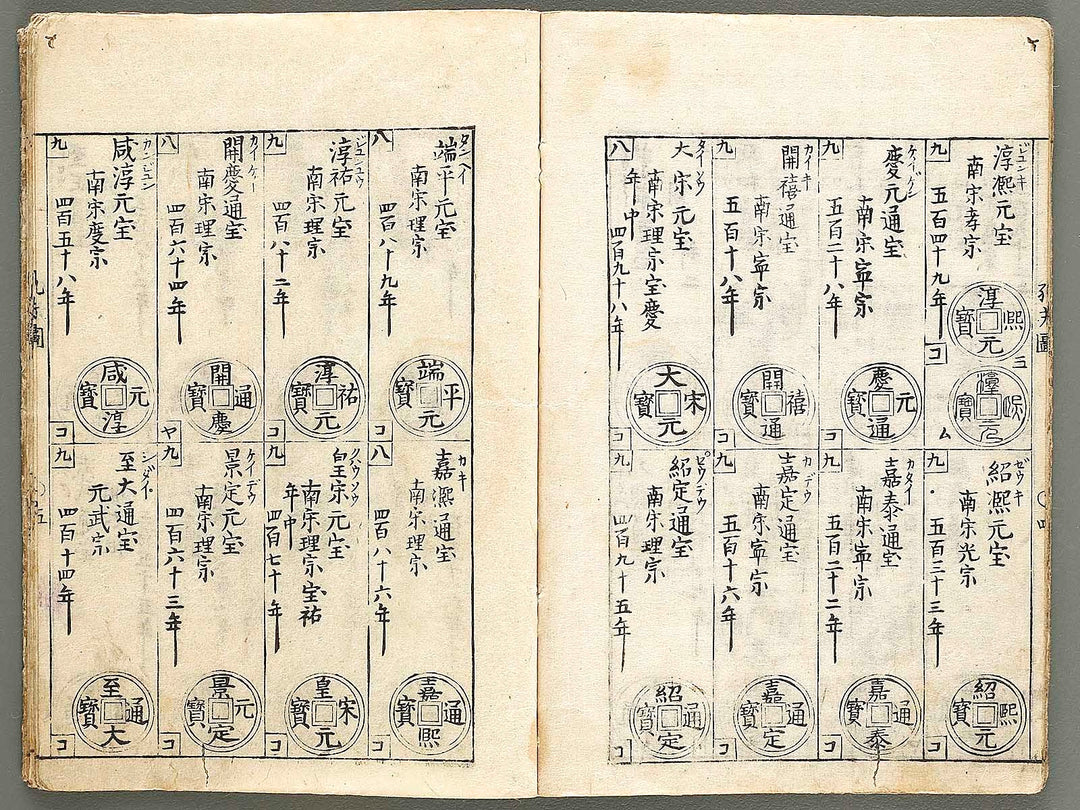 九
ジユンキ
淳熙元宝
南宋孝宗
五百四十九年
淳熙元寶
コ
ム
九
ケイゲン
慶元通宝
南宋寧宗
五百二十八年
慶元通寶
コ
九
カイキ
開禧通宝
南宋寧宗
五百十八年
開禧通寶
コ
八
タイソウ
大宋元宝
南宋理宗宝慶
年中
四百九十八年
大宋元寶
コ
九
ゼウキ
紹熙元宝
南宋光宗
五百三十三年
紹熙元寶
コ
九
カタイ
嘉泰通宝
南宋寧宗
五百二十二年
嘉泰通寶
コ
九
カデウ
嘉定通宝
南宋寧宗
五百十六年
嘉定通寶
コ
九
紹定通宝
南宋理宗
四百九十五年
紹定通寶
コ
〇四
八
端平元宝
南宋理宗
四百八十九年
端平元寶
コ
九
淳祐元宝
南宋理宗
四百八十二年
淳祐元寶
コ
八
カイケー
開慶通宝
南宋理宗
四百六十四年
開慶通寶
ヤ
九
カンジユン
咸淳元宝
南宋度宗
四百五十八年
咸淳元寶
コ
八
カキ
嘉熙通宝
南宋理宗
四百八十六年
嘉熙通寶
コ
九
皇宋元宝
南宋理宗宝祐
年中
四百七十年
皇宋元寶
コ
九
ケイデウ
景定元宝
南宋理宗
四百六十三年
景定元寶
コ
九
シダイ
至大通宝
元武宗
四百十四年
至大通寶
コ
〇五